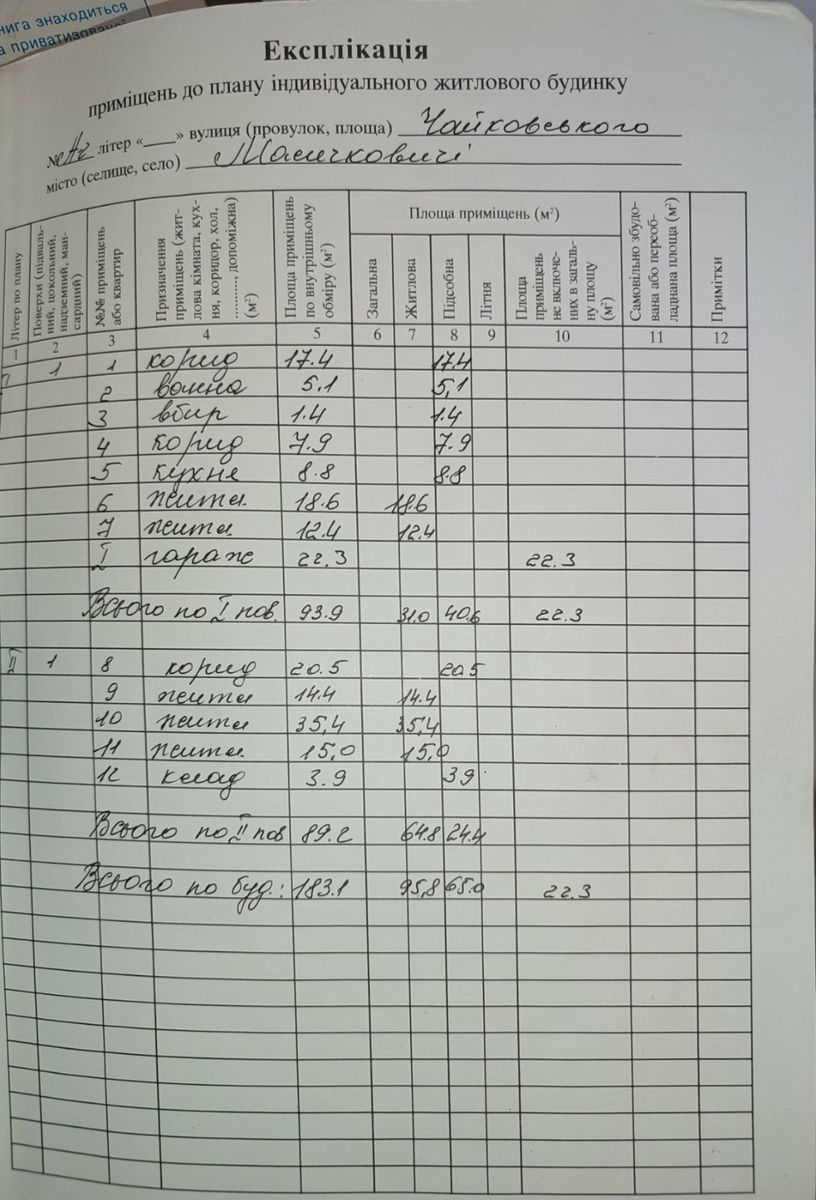 нига знаходиться
а приватизованої
Експлікація
приміщень до плану індивідуального житлового будинку
№ літер «___» вулиця (провулок, площа) Чайковського
місто (селище, село)
Літер по плану
Поверхи (підваль-
ний, цокольний,
надземний, ман-
сардний)
№№ приміщень
або квартир
Призначення
приміщень (жит-
лова кімната, кух-
ня, коридор, хол,
..........., допоміжна)
(м²)
Площа приміщень
по внутрішньому
обміру (м²)
Площа приміщень (м²)
Загальна
Житлова
Підсобна
Літня
Площа
приміщень
не включе-
них в загаль-
ну площу
(м²)
Самовільно збудо-
вана або переоб-
ладнана площа (м²)
Примітки
1 2 3 4 5 6 7 8 9 10 11 12
1 1 корид 17.4 17.4
2 ванна 5.1 5,1
3 вбир 1.4 1.4
4 корид 7.9 7.9
5 кухня 8.8 8.8
6 житл. 18.6 18.6
7 житл. 12.4 12.4
I гараж 22.3 22.3
Всього по I пов. 93.9 31.0 40.6 22.3
II 1 8 корид 20.5 20.5
9 житл 14.4 14.4
10 житл 35,4 35,4
11 житл. 15,0 15,0
12 клад 3.9 3.9
Всього по II пов 89.2 64.8 24.4
Всього по буд.: 183.1 95,8 65.0 22.3